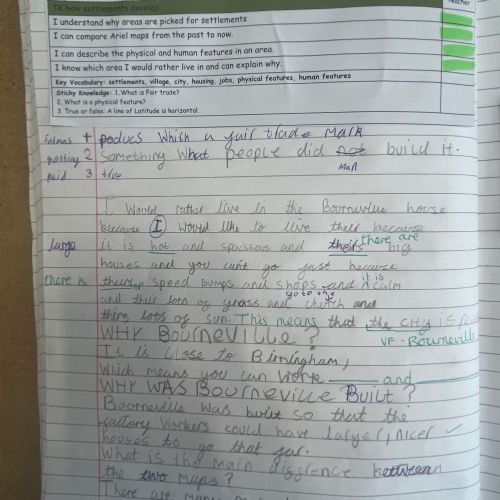 TK how settlements develop
Teacher
I understand why areas are picked for settlements
I can compare Ariel maps from the past to now.
I can describe the physical and human features in an area.
I know which area I would rather live in and can explain why.
Key Vocabulary: settlements, village, city, housing, jobs, physical features, human features
Sticky Knowledge: 1. What is Fair trade?
2. What is a physical feature?
3. True or false: A line of Latitude is horizontal.
poducs which a fair trade Mark
2 Something What people did not build it.
paid 3 true
Man
I Would rather live in the Bourneville house
because I would like to live their because
large it is hot and spashous and theirs there are big
houses and you cant go fast because
there is speed bumps and shops and it is calm
go to the
and their lots of grass and church and
thing lots of sun. This means that the city is
WHY BOURNEVILLE?
VF - Bournevill
It is close to Birmingham,
which means you can work ______ and ______
WHY WAS BOURNEVILLE BUILT?
Bourneville was built so that the
factory workers could have larger, nicer
houses to go that far.
What is the main diffrence between
the two maps?
There are many